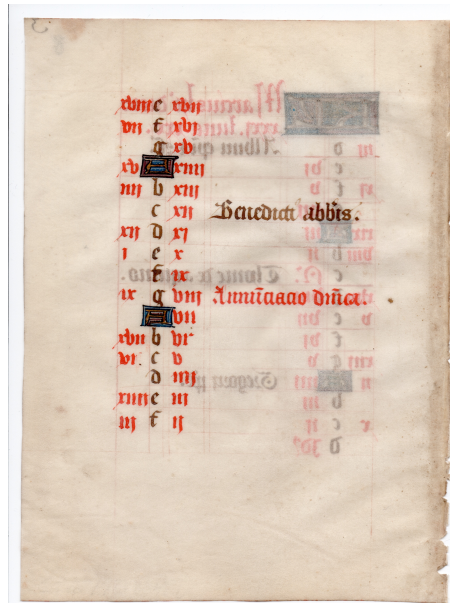 xviij e xvij
vij f xvj
g xv
xv A xiiij
iiij b
c xij Benedicti abb̃is.
xij d xj
i e x
f ix
ix g viij Annũciacio dñica.
A vij
xvij b vi
vi. c v
d iiij
xiiij e iij
iij f ij